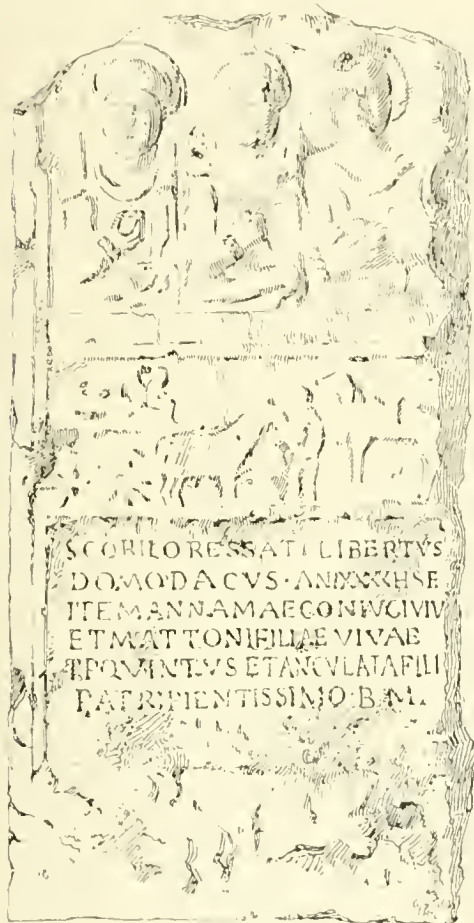 SCORILO RESSATI LIBERTVS
DOMO DACVS · AN LXXXX H S E
ITEM ANNAMAE CONIVGI VIV
ET MATTONI FILIAE VIVAE
QVINTVS ET ANCVLATA FILI
PATRI PIENTISSIMO · B · M ·